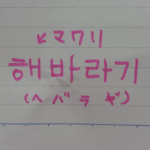 ↙マワリ
해바라기
(ヘバラギ)